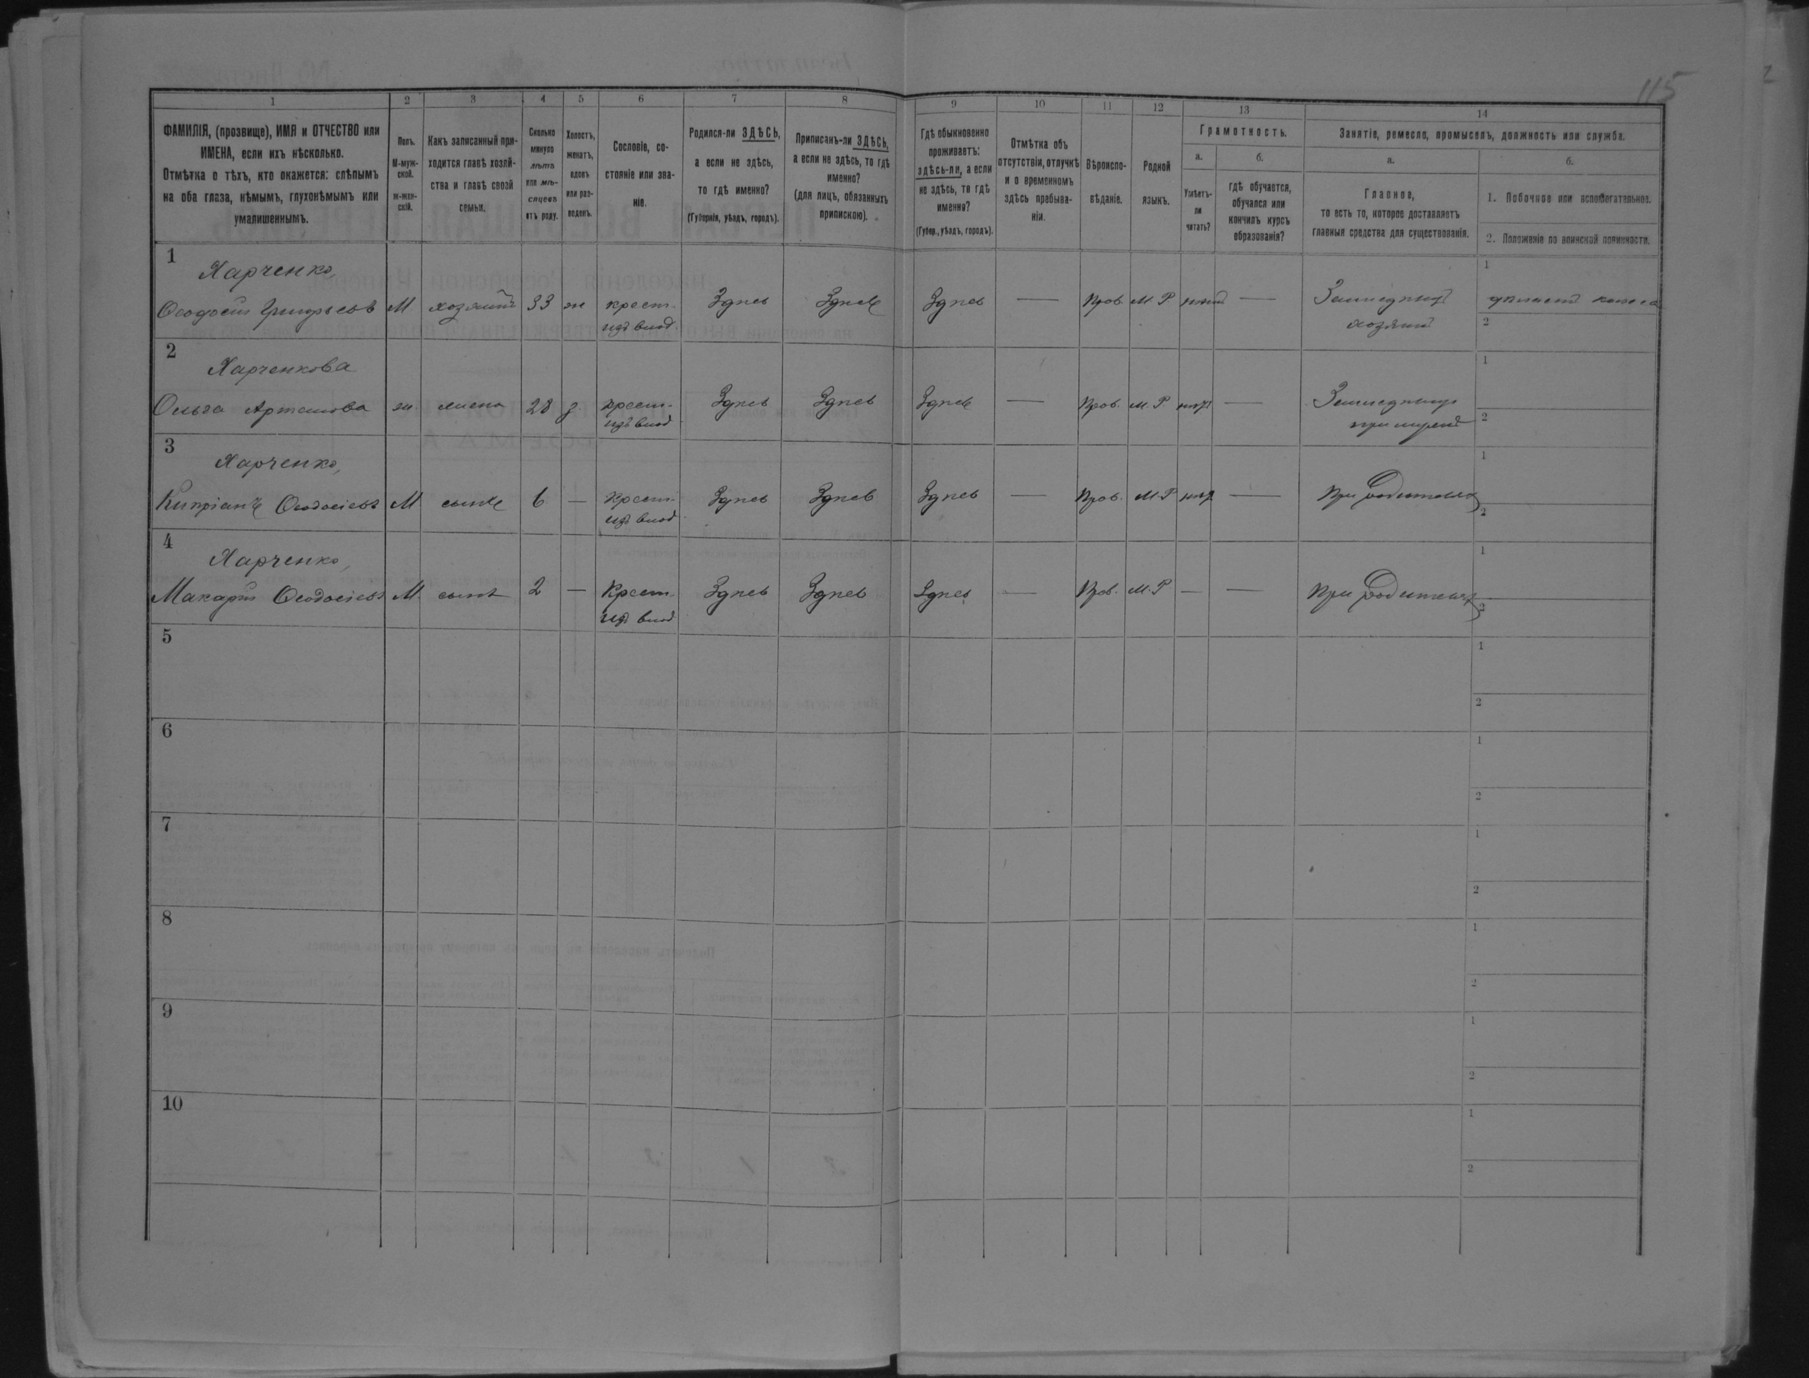 115
1 2 3 4 5 6 7 8 9 10 11 12 13 14
ФАМИЛІЯ, (прозвище), ИМЯ и ОТЧЕСТВО или
ИМЕНА, если ихъ нѣсколько.
Отмѣтка о тѣхъ, кто окажется: слѣпымъ
на оба глаза, нѣмымъ, глухонѣмымъ или
умалишеннымъ.
Полъ.
М-муж-
ской.
ж-жен-
скій.
Какъ записанный при-
ходится главѣ хозяй-
ства и главѣ своей
семьи.
Сколько
минуло
лѣтъ
или мѣ-
сяцевъ
отъ роду.
Холостъ,
женатъ,
вдовъ
или раз-
веденъ.
Сословіе, со-
стояніе или зва-
ніе.
Родился-ли ЗДѢСЬ,
а если не здѣсь,
то гдѣ именно?
(Губернія, уѣздъ, городъ).
Приписанъ-ли ЗДѢСЬ,
а если не здѣсь, то гдѣ
именно?
(для лицъ, обязанныхъ
припискою).
Гдѣ обыкновенно
проживаетъ:
здѣсь-ли, а если
не здѣсь, то гдѣ
именно?
(Губер., уѣздъ, городъ).
Отмѣтка объ
отсутствіи, отлучкѣ
и о временномъ
здѣсь пребыва-
ніи.
Вѣроиспо-
вѣданіе.
Родной
языкъ.
Грамотность.
а.
Умѣетъ-
ли
читать?
б.
гдѣ обучается,
обучался или
кончилъ курсъ
образованія?
Занятіе, ремесло, промыселъ, должность или служба.
а.
Главное,
то есть то, которое доставляетъ
главныя средства для существованія.
б.
1. Побочное или вспомогательное.
2. Положеніе по воинской повинности.
1
Харченко,
Ѳеодосій Григорьевъ М хозяинъ 33 ж крест. Здѣсь Здѣсь Здѣсь — Прав. М. Р — Земледѣлецъ
хозяинъ
1
2
2
Харченкова
Ольга Артемова ж жена 28 з крест. Здѣсь Здѣсь Здѣсь — Прав. М. Р —
1
2
3
Харченко,
Кипріанъ Ѳеодосіевъ М сынъ 6 — крест. Здѣсь Здѣсь Здѣсь — Прав. М. Р — При родителяхъ
1
2
4
Харченко,
Макарій Ѳеодосіевъ М сынъ 2 — Крест. Здѣсь Здѣсь Здѣсь — Прав. М. Р — — При родителяхъ
1
2
5
1
2
6
1
2
7
1
2
8
1
2
9
1
2
10
1
2